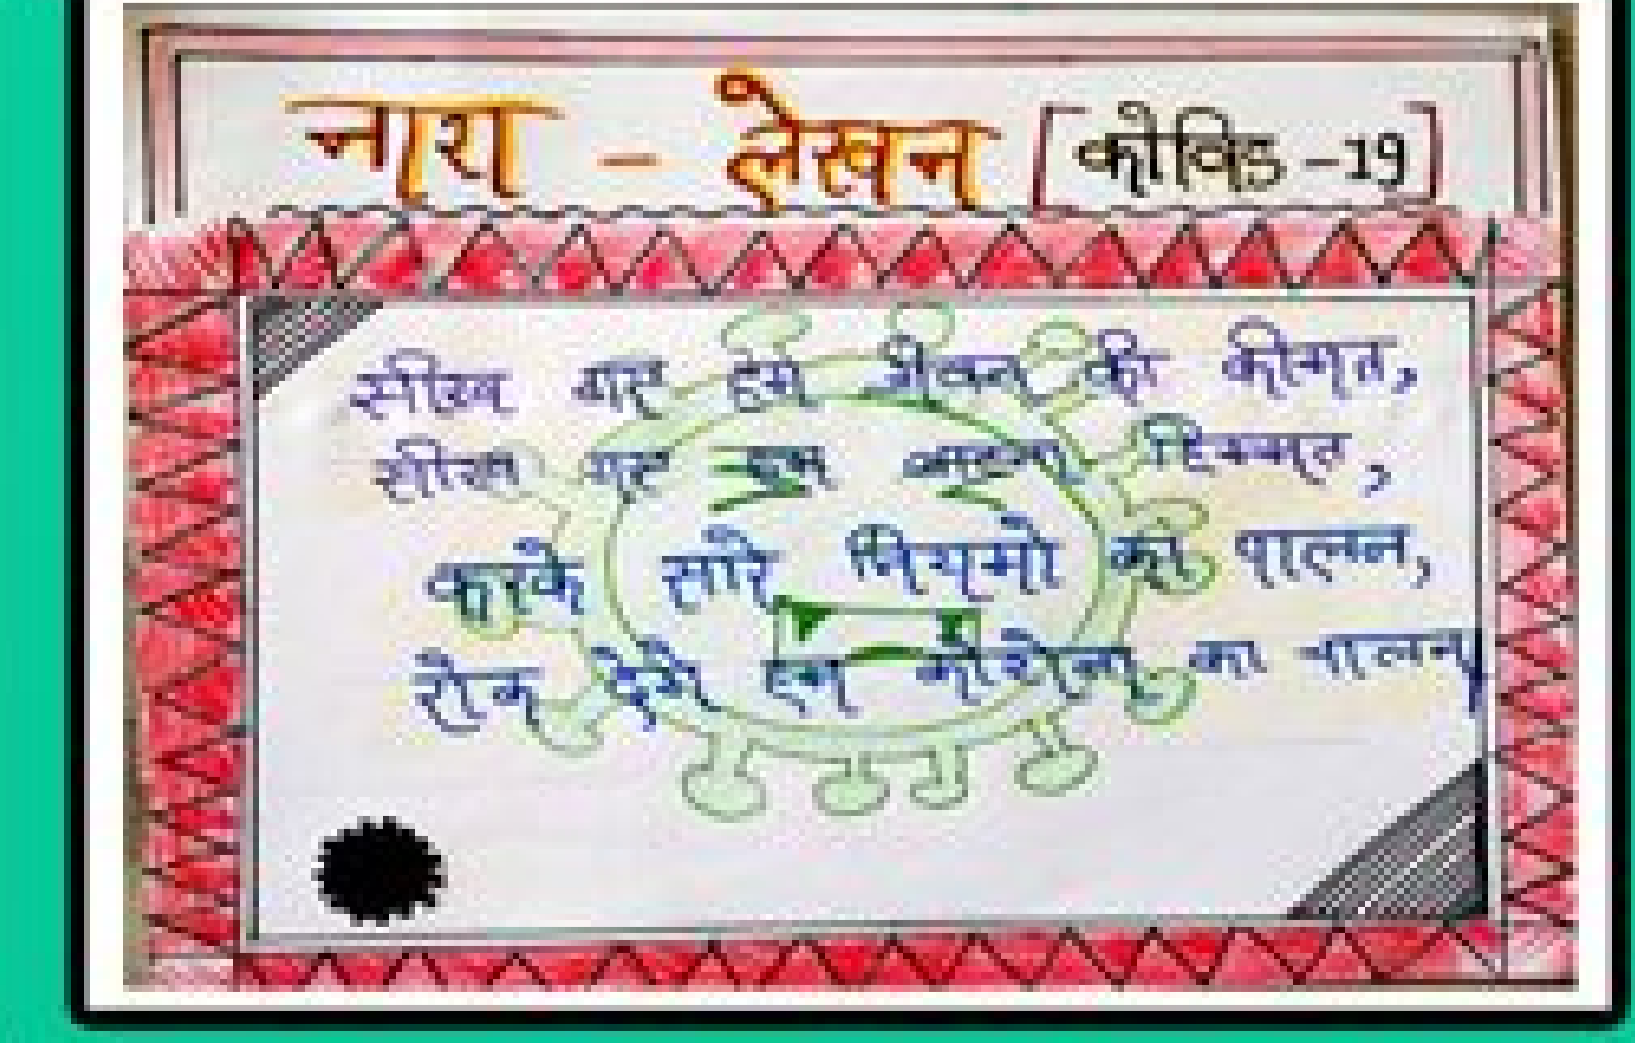 नारा - लेखन [कोविड -19]
सीख गए हम जीवन की कीमत,
सीख गए हम करना हिम्मत,
करके सारे नियमो का पालन,
रोक देगे हम कोरोना का चालन